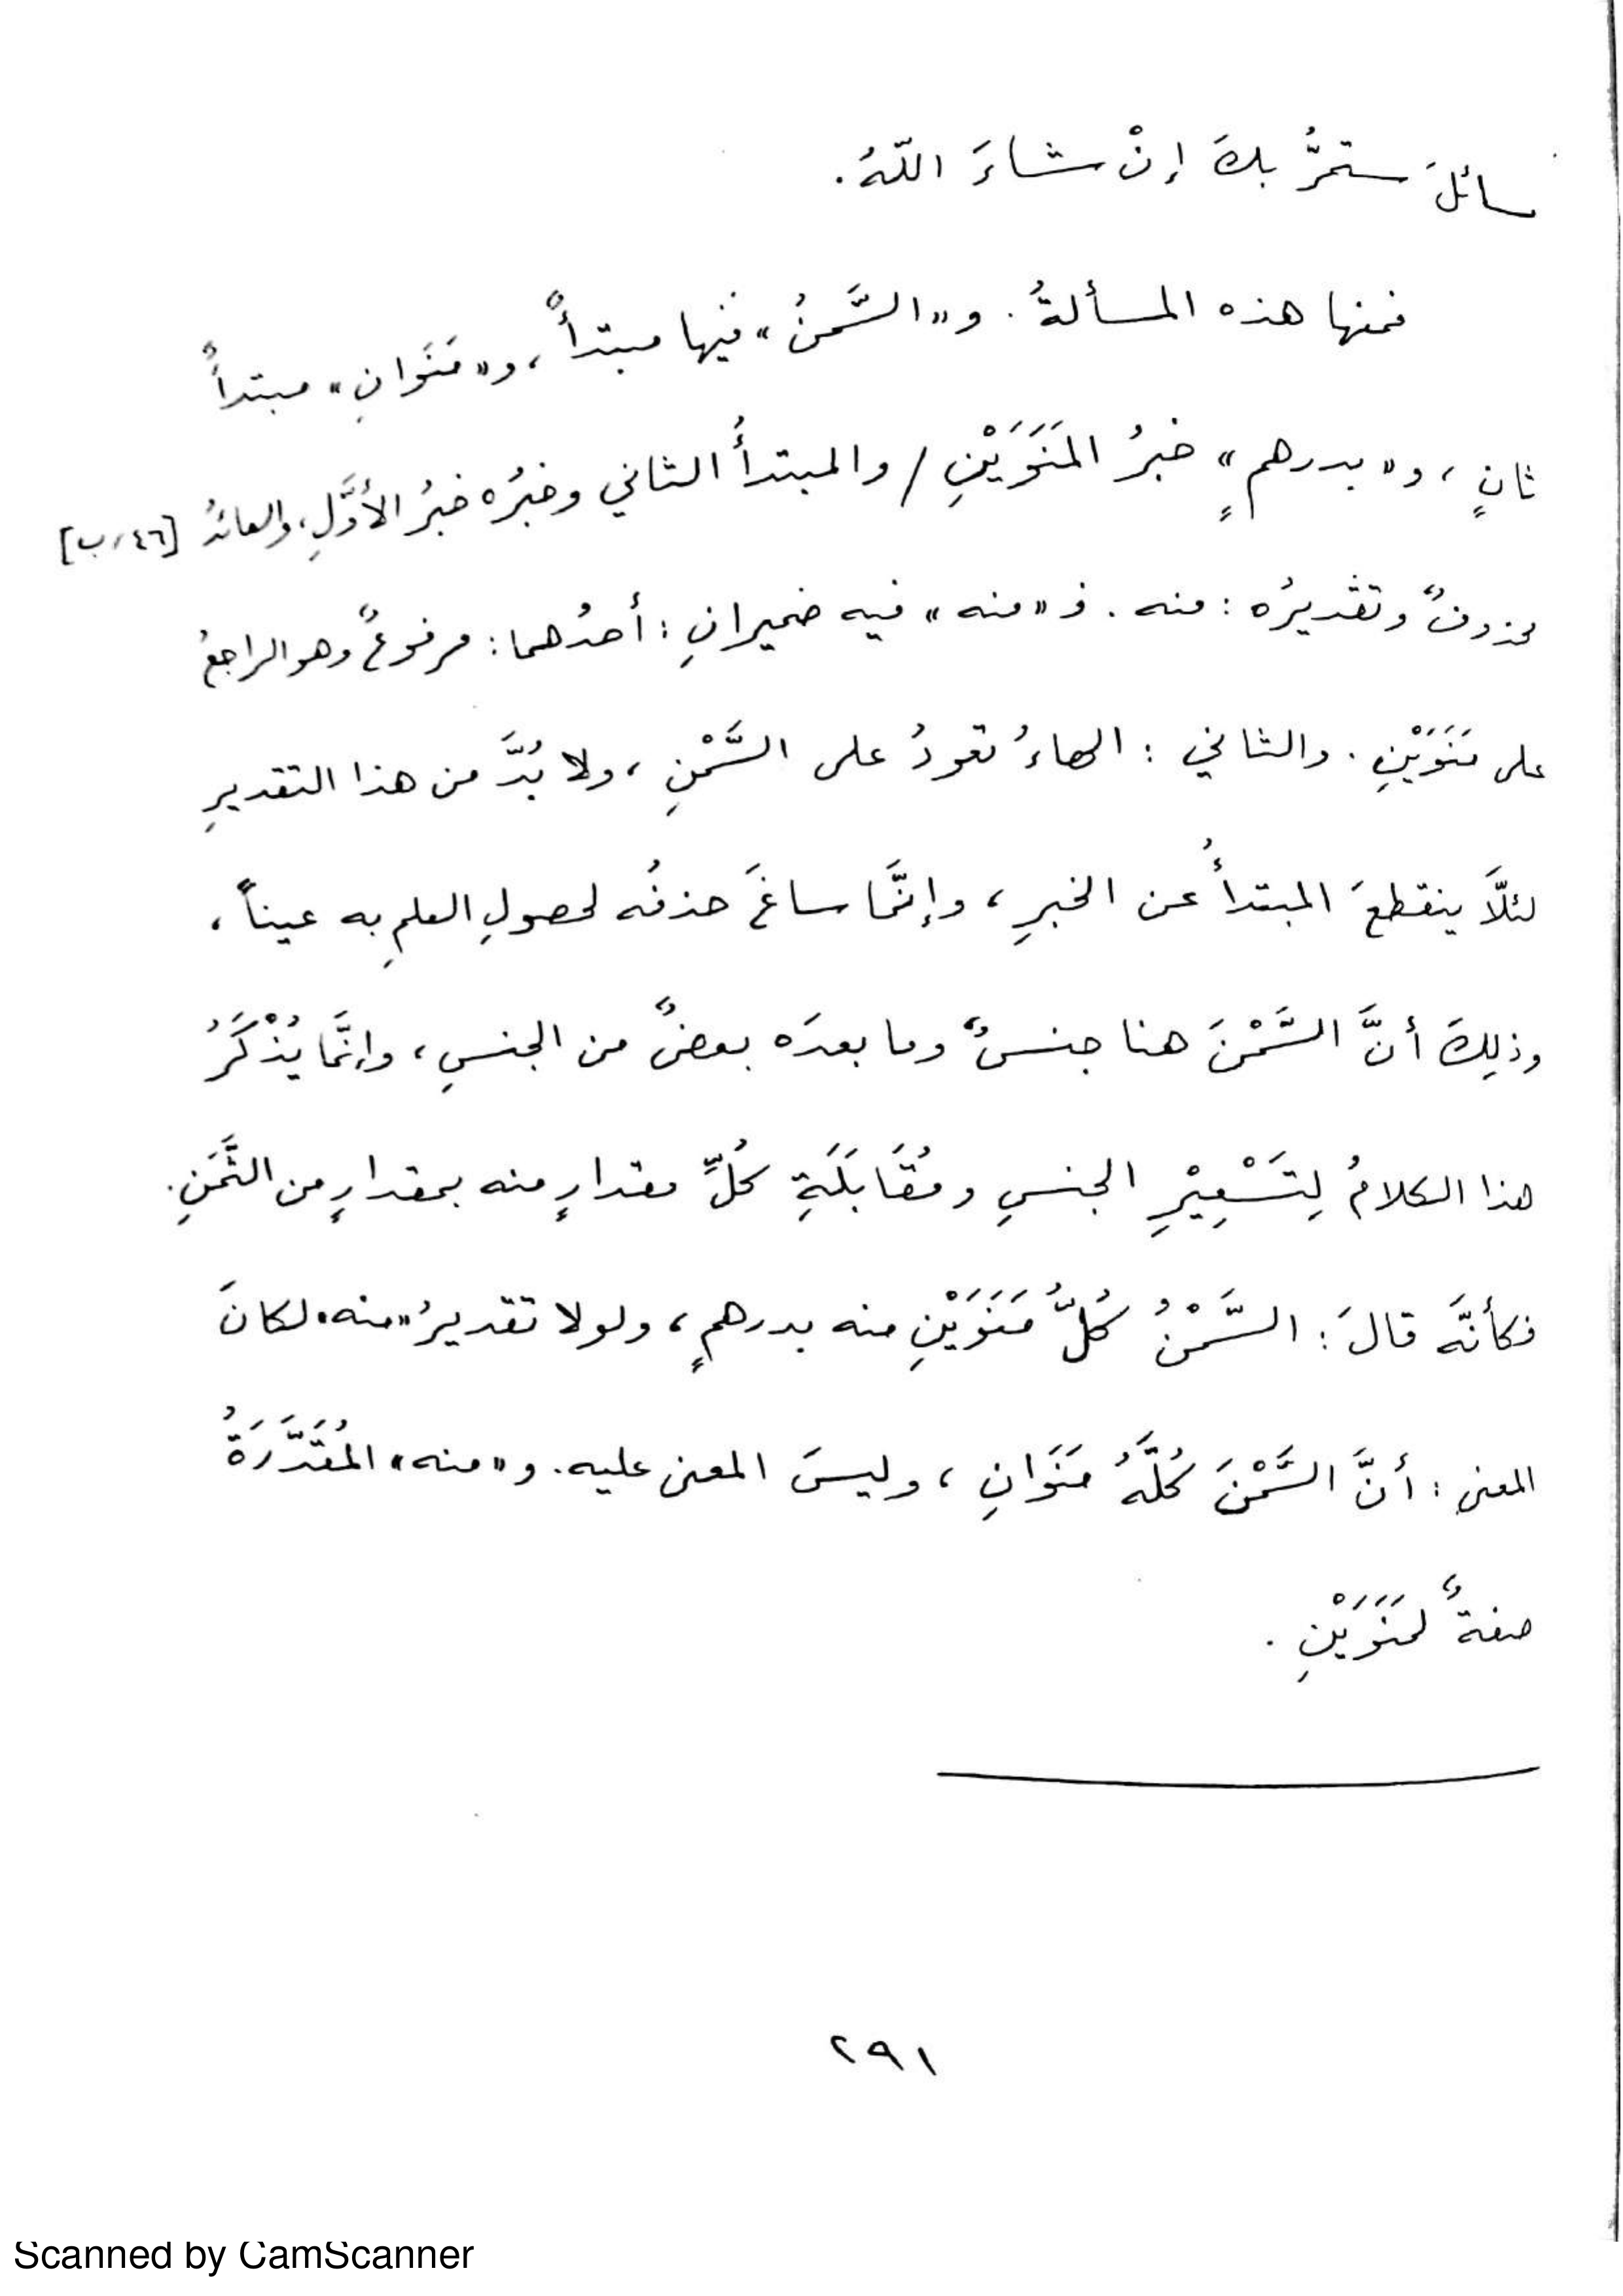 سائلَ ستمرُّ بكَ إنْ شاءَ اللّهُ.
فمنها هذه المسألةُ. و«السَّمنُ» فيها مبتدأٌ، و«مَنَوانِ» مبتدأٌ
ثانٍ، و«بدرهمٍ» خبرُ المَنَوَيْنِ / والمبتدأُ الثاني وخبرُه خبرُ الأوَّلِ، والعائدُ [٤٦/ب]
محذوفٌ وتقديرُه: منه. فـ«منه» فيه ضميرانِ: أحدُهما: مرفوعٌ وهو الراجعُ
على مَنَوَيْنِ. والثاني: الهاءُ تعودُ على السَّمْنِ، ولا بُدَّ من هذا التقديرِ
لئلَّا ينقطعَ المبتدأُ عن الخبرِ، وإنَّما ساغَ حذفُه لحصولِ العلمِ به عيناً،
وذلِكَ أنَّ السَّمْنَ هنا جنسٌ وما بعدَه بعضٌ من الجنسِ، وإنَّما يُذْكَرُ
هذا الكلامُ لِتَسْعِيْرِ الجنسِ ومُقَابَلَةِ كُلِّ مقدارٍ منه بمقدارٍ من الثَّمَنِ.
فكأنَّه قالَ: السَّمْنُ كُلُّ مَنَوَيْنِ منه بدرهمٍ، ولولا تقديرُ «منه» لكانَ
المعنى: أنَّ السَّمْنَ كُلَّهُ مَنَوانِ، وليسَ المعنى عليه. و«منه» المُقَدَّرَةُ
صفةٌ لمَنَوَيْنِ.
٢٩١
Scanned by CamScanner